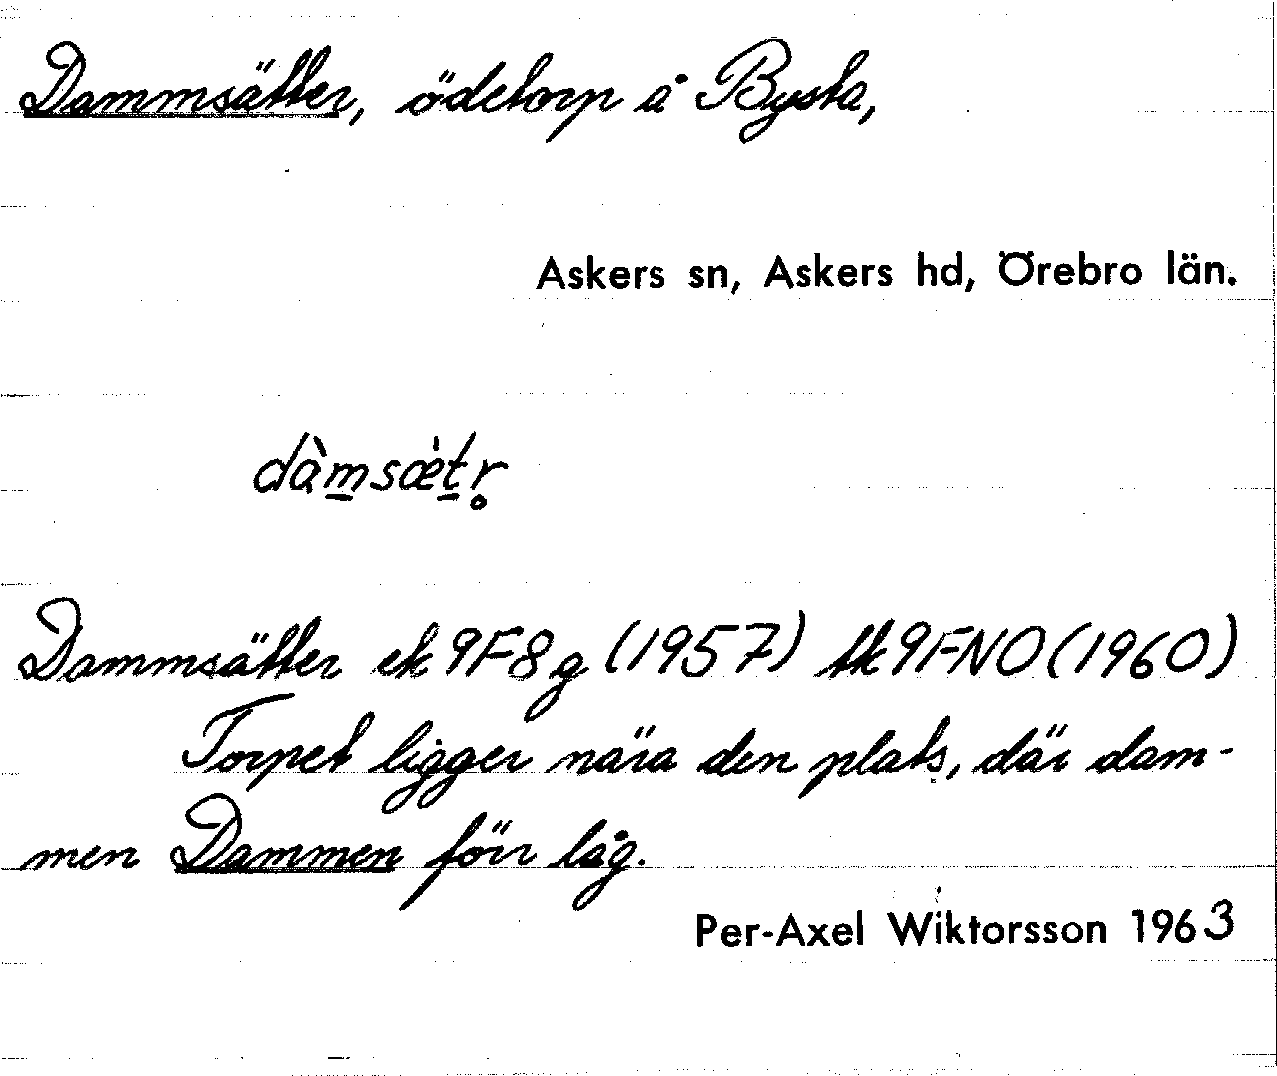 Dammsätter, ödetorp å Bysta,
Askers sn, Askers hd, Örebro län.
dàm̲sæ̀t̲r̥
Dammsätter ek 9F8g (1957) tk 9FNO (1960)
Torpet ligger nära den plats, där dam-
men Dammen förr låg.
Per-Axel Wiktorsson 1963